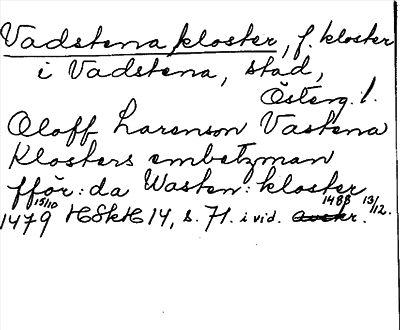 Vadstena kloster, f. kloster
i Vadstena, stad,
Österg. l.
Oloff Larenson Vastena
Klosters embetzman
fför: da Wasten: kloster
15/10 1488 13/12.
1479 HSkH 14, s. 71. i vid. avskr.